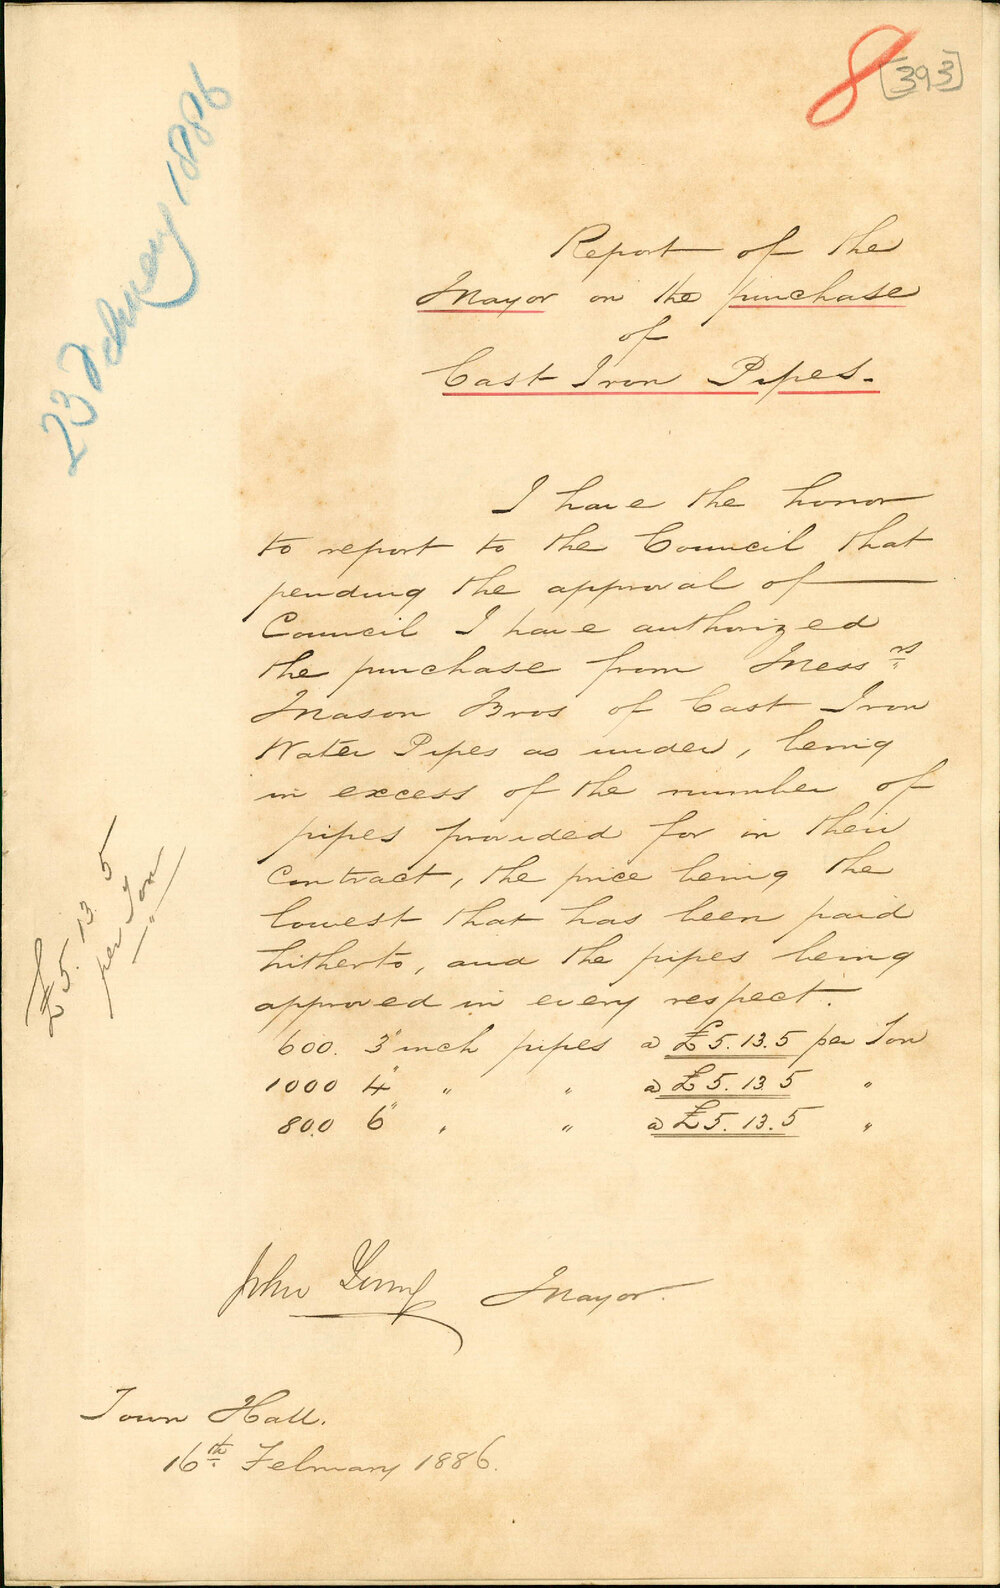 8 [393]
23 February 1886
Report of the
Mayor on the purchase
of
Cast Iron Pipes.
I have the honor
to report to the Council that
pending the approval of
Council I have authorized
the purchase from Messrs
Mason Bros of Cast Iron
Water Pipes as under, being
in excess of the number of
pipes provided for in their
contract, the price being the
lowest that has been paid
hitherto, and the pipes being
approved in every respect.
600. 3" inch pipes a £5.13.5 per Ton
1000 4" " " a £5.13.5 "
800 6" " " a £5.13.5 "
£5.13.5
per Ton
John Young Mayor.
Town Hall.
16th February 1886.